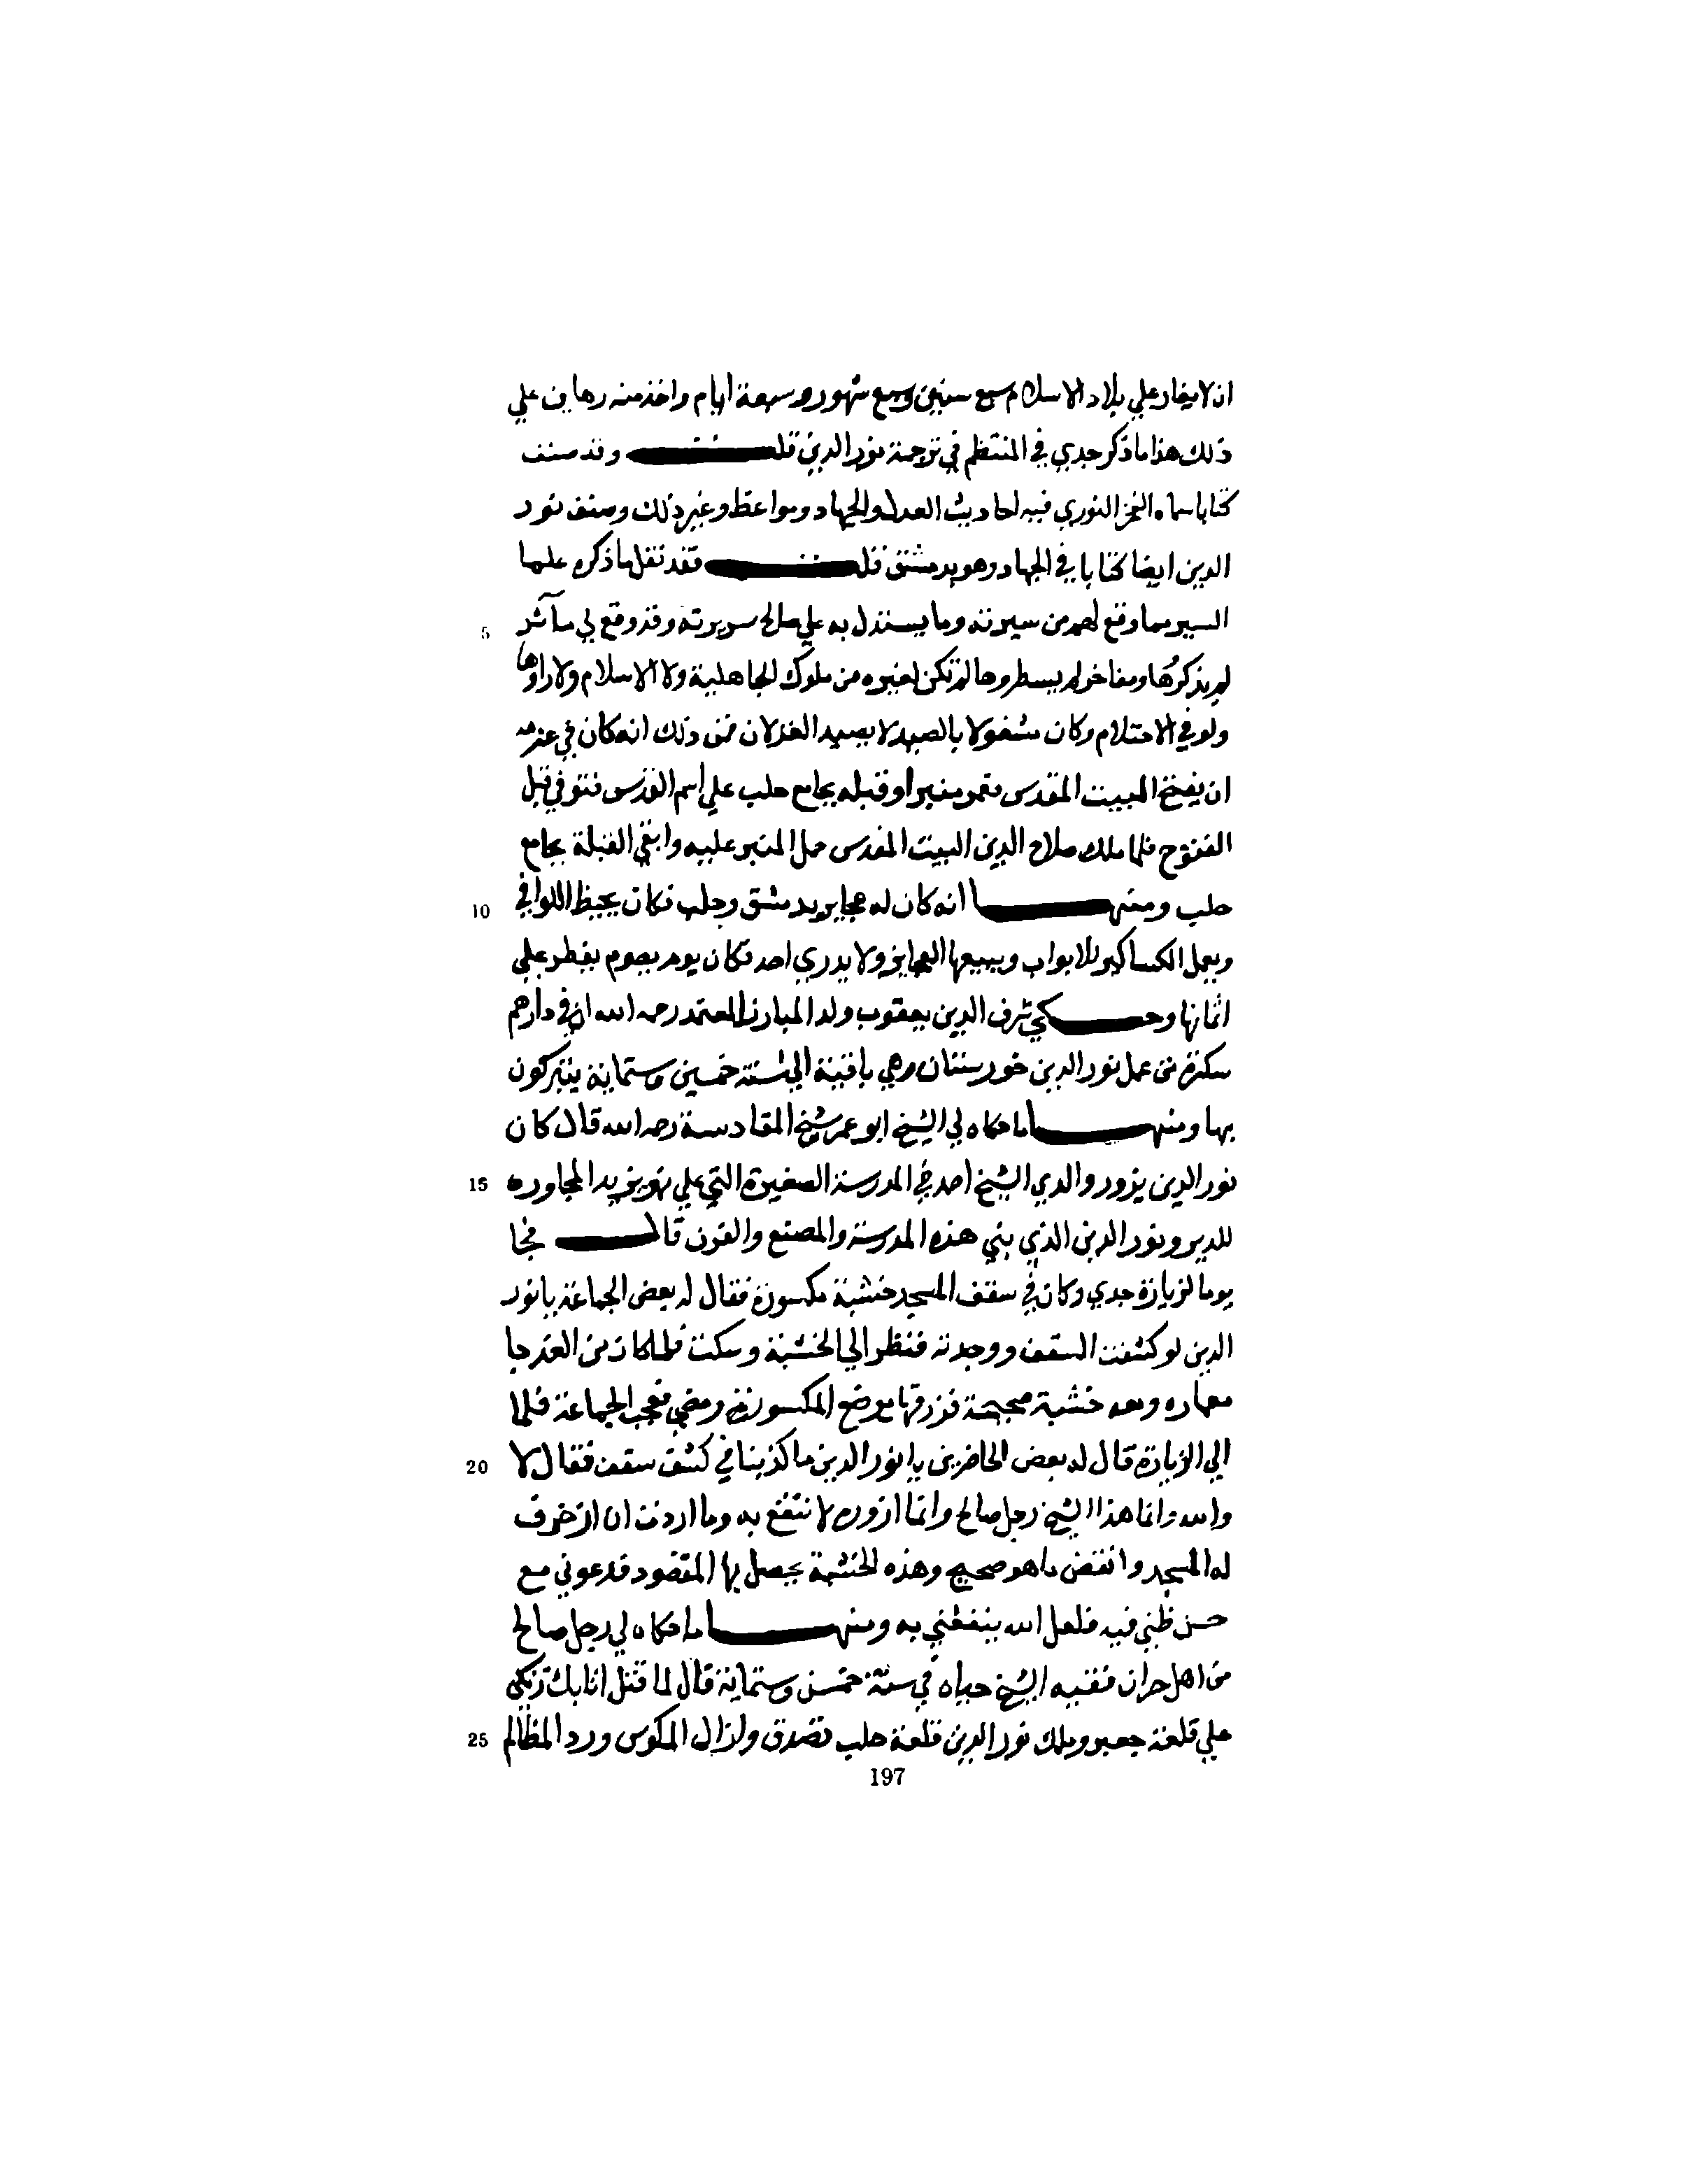 ان لا يغار علي بلاد الاسلام سبع سنين وسبع شهور وسبعة ايام واخذ منه رهاين علي
ذلك هذا ما ذكر جدي في المنتظم في ترجمة نور الدين قلت وقد صنف
كتابا سماه الفخر النوري فيه احاديث العدل والجهاد ومواعظ وغير ذلك وصنف نور
الدين ايضا كتابا في الجهاد وهو بدمشق قلت فقد نقل ما ذكره علما
5 السير مما وقع لهم من سيرته وما يستدل به علي صالح سريرته وقد وقع لي مآثر
لم يذكرُها ومفاخر لم يسطروها لم تكن لغيره من ملوك الجاهلية ولا الاسلام ولا راوها
ولو في الاحتلام وكان مشغولا بالصيد لا بصيد الغزلان فمن ذلك انه كان في عزمه
ان يفتح البيت المقدس فعمر منبرا وقبله بجامع حلب علي اسم القدس فتوفي قبل
الفتوح فلما ملك صلاح الدين البيت المقدس حمل المنبر عليه وابقي القبلة بجامع
10 حلب ومنها انه كان له عجايز بدمشق وحلب فكان يخيط اللوافي
ويعمل الكساكير للابواب ويبيعها العجايز ولا يدري احد فكان يوم يصوم يفطر علي
اثمانها وحكي شرف الدين يعقوب ولد المبارز المعتمد رحمه الله ان في دارهم
سكرة من عمل نور الدين خورستان وهي باقية الي سنة خمسين وستماية يتبركون
بها ومنها ما حكاه لي الشيخ ابو عمر شيخ المقادسة رحمه الله قال كان
15 نور الدين يزور والدي الشيخ احمد في المدرسة الصغيرة التي علي نهر يزيد المجاوره
للدير ونور الدين الذي بني هذه المدرسة والمصنع والفرن قال فجا
يوما لزيارة جدي وكان في سقف المسجد خشبة مكسورة فقال له بعض الجماعة يا نور
الدين لو كشفت السقف وجددته فنظر الي الخشبة وسكت فلما كان من الغد جا
معماره ومعه خشبة صحيحة فزرقها موضع المكسورة ومضي فعجب الجماعة فلما
20 الي الزيارة قال له بعض الحاضرين يا نور الدين ما كذبنا في كشف سقف فقال لا
والله وانما هذا الشيخ رجل صالح وانما ازوره لانتفع به وما اردت ان ازخرف
له المسجد وانقض ما هو صحيح وهذه الخشبة يحصل بها المقصود فدعوني مع
حسن ظني فيه فلعل الله ينفعني به ومنها ما حكاه لي رجل صالح
من اهل حران فقيه الشيخ حياه في سنة خمس وستماية قال لما قتل اتابك زنكي
25 علي قلعة جعبر وملك نور الدين قلعة حلب تصدق وازال المكوس ورد المظالم
197